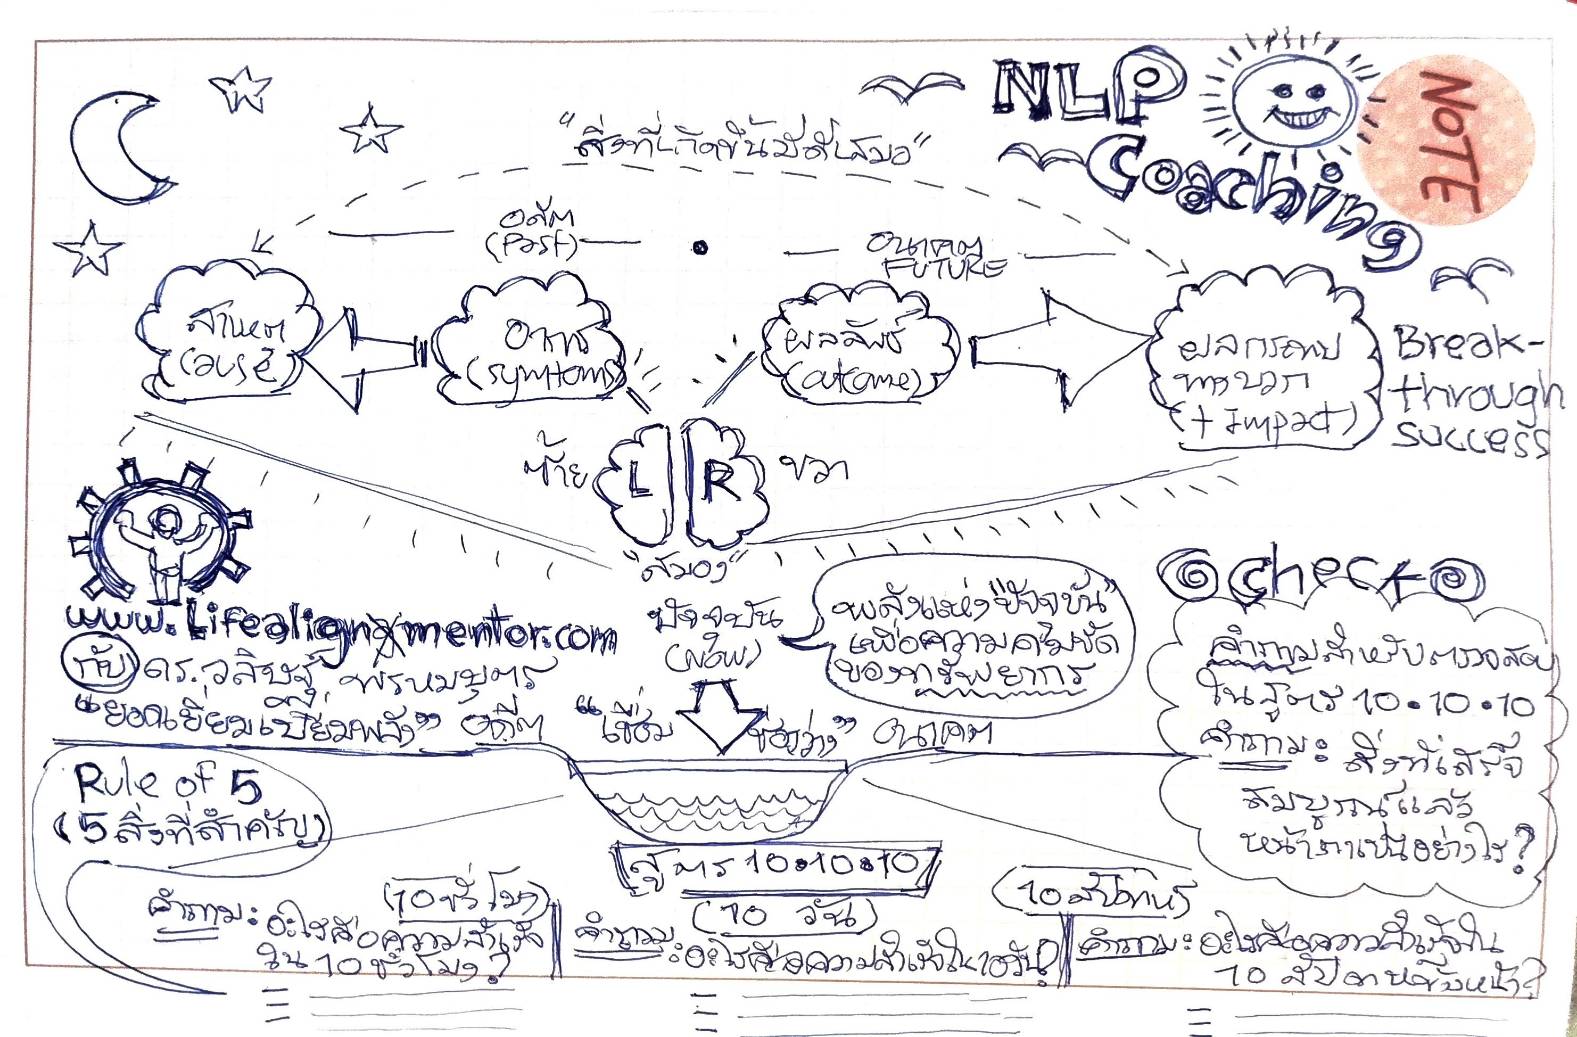 NLP
Coaching
NOTE
"สิ่งที่เกิดขึ้นมีดีเสมอ"
อดีต
(Past)
อนาคต
FUTURE
สาเหตุ
(cause)
อาการ
(symtoms)
ผลลัพธ์
(outcome)
ผลกระทบ
ทางบวก
(+ Impact)
Break-
through
success
ซ้าย
L R
ขวา
"สมอง"
ปัจจุบัน
(NOW)
พลังแห่ง"ปัจจุบัน"
เพื่อความคมชัด
ของทรัพยากร
www.Lifealignxmentor.com
กับ ดร.วสิษฐ์ พรหมบุตร
"ยอดเยี่ยมเปี่ยมพลัง"
อดีต "เชื่อม ช่องว่าง" อนาคต
check
คำถามสำหรับตรวจสอบ
ในสูตร 10•10•10
คำถาม: สิ่งที่เสร็จ
สมบูรณ์แล้ว
หน้าตาเป็นอย่างไร?
Rule of 5
(5 สิ่งที่สำคัญ)
สูตร 10•10•10
(10 ชั่วโมง)
คำถาม: อะไรคือความสำเร็จ
ใน 10 ชั่วโมง?
(10 วัน)
คำถาม: อะไรคือความสำเร็จใน 10 วัน?
(10 สัปดาห์)
คำถาม: อะไรคือความสำเร็จใน
10 สัปดาห์ข้างหน้า?